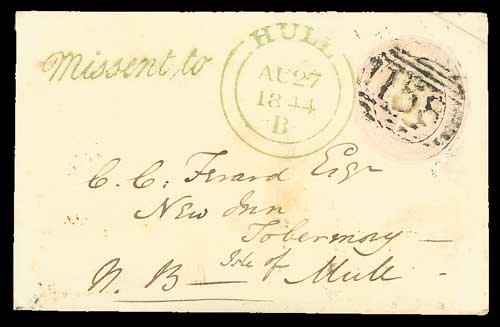 Missent to
HULL
AU 27
1844
B
C. C. Ferard Esqr
New Inn
Tobermory
Isle of Mull
N. B